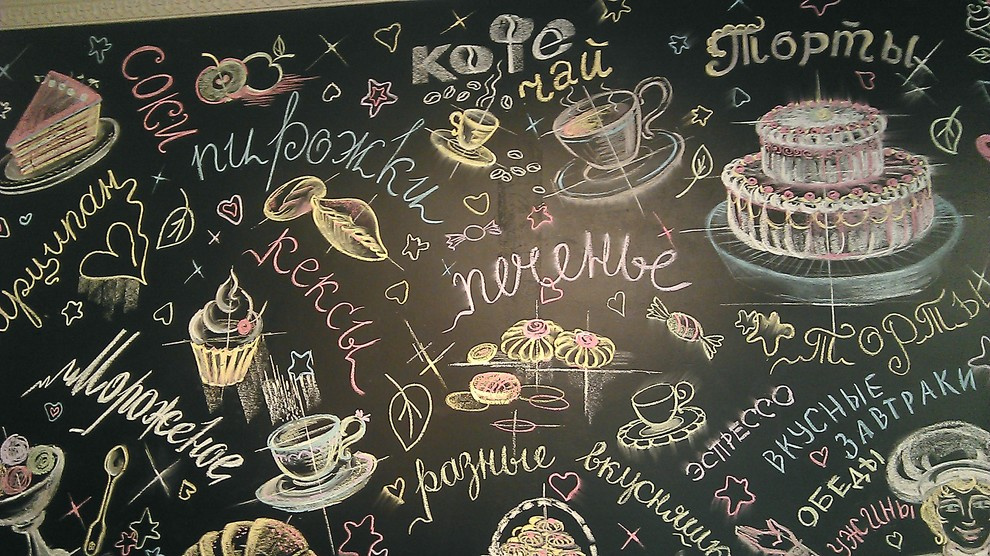 кофе
чай
Торты
Соки
пирожки
арципан
Кексы
печенье
Торты
Мороженое
разные
вкусняшк
эспрессо
вкусные
завтраки
обеды
ужины